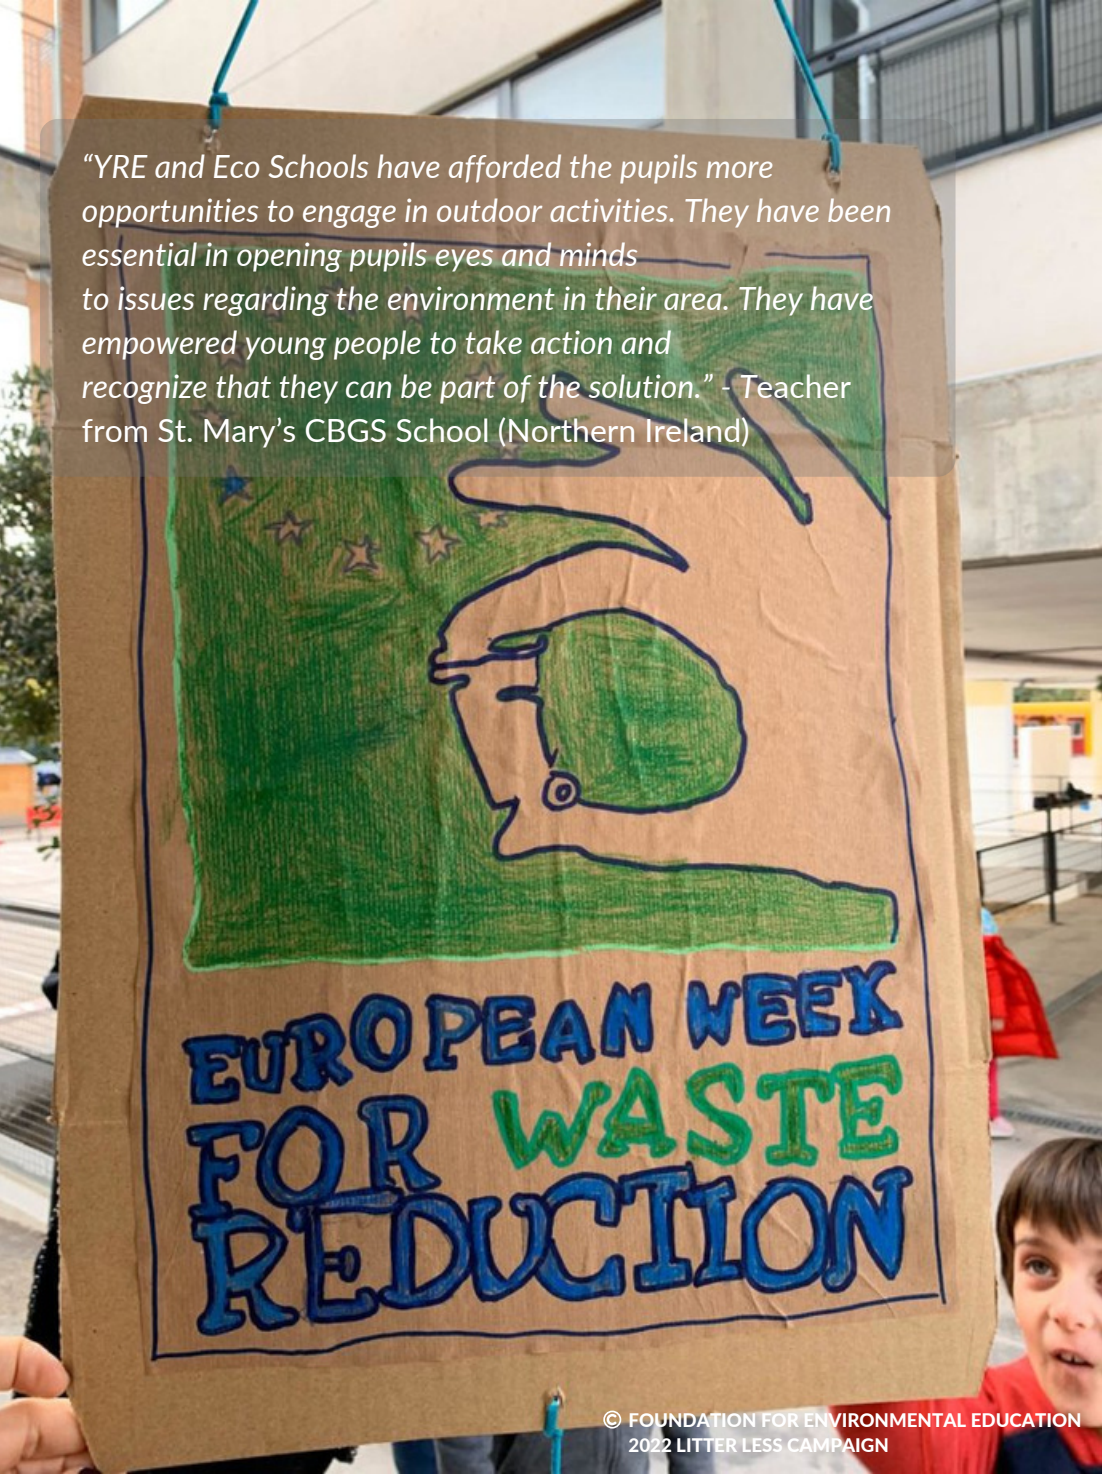 “YRE and Eco Schools have afforded the pupils more
opportunities to engage in outdoor activities. They have been
essential in opening pupils eyes and minds
to issues regarding the environment in their area. They have
empowered young people to take action and
recognize that they can be part of the solution.” - Teacher
from St. Mary’s CBGS School (Northern Ireland)
EUROPEAN WEEK
FOR WASTE
REDUCTION
© FOUNDATION FOR ENVIRONMENTAL EDUCATION
2022 LITTER LESS CAMPAIGN